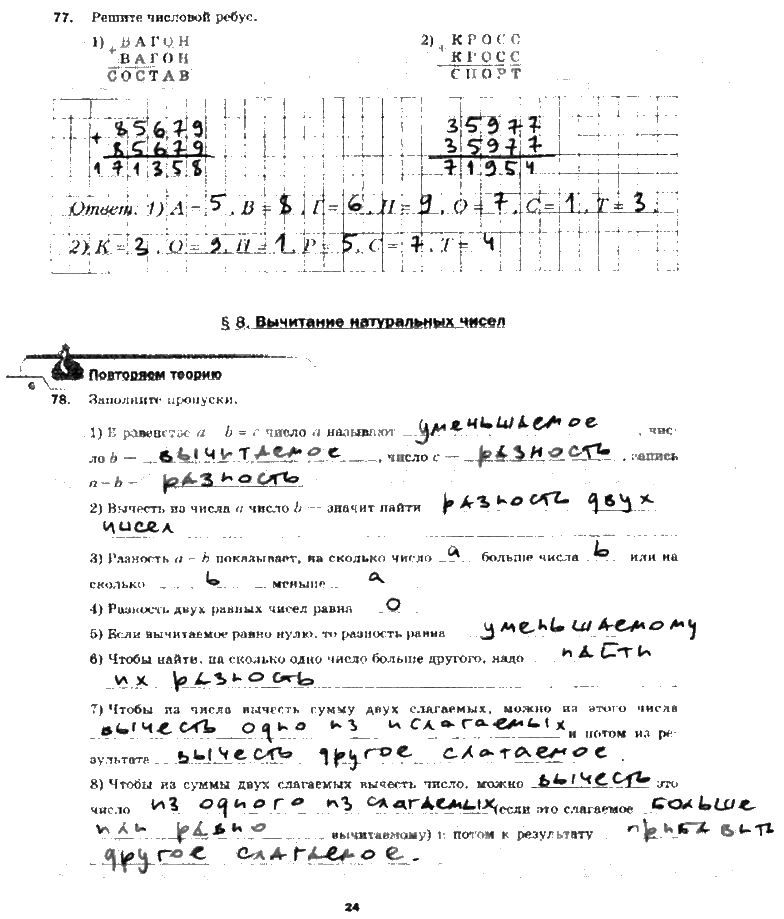 77. Решите числовой ребус.
1) + ВАГОН
ВАГОН
СОСТАВ
2) + КРОСС
КРОСС
СПОРТ
+ 85679
85679
171358
35977
35977
71954
Ответ. 1) А = 5, В = 8, Г = 6, Н = 9, О = 7, С = 1, Т = 3.
2) К = 3, О = 9, П = 1, Р = 5, С = 7, Т = 4
§ 8. Вычитание натуральных чисел
6
Повторяем теорию
78. Заполните пропуски.
1) В равенстве a b = c число a называют уменьшаемое, чис-
ло b — вычитаемое, число c — разность, запись
a – b – разность
2) Вычесть из числа a число b — значит найти разность двух
чисел
3) Разность a – b показывает, на сколько число a больше числа b или на
сколько b меньше a
4) Разность двух равных чисел равна 0
5) Если вычитаемое равно нулю, то разность равна уменьшаемому
6) Чтобы найти, на сколько одно число больше другого, надо найти
их разность
7) Чтобы из числа вычесть сумму двух слагаемых, можно из этого числа
вычесть одно из слагаемых и потом из ре-
зультата вычесть другое слагаемое.
8) Чтобы из суммы двух слагаемых вычесть число, можно вычесть это
число из одного из слагаемых (если это слагаемое больше
или равно вычитаемому) и потом к результату прибавить
другое слагаемое.
24